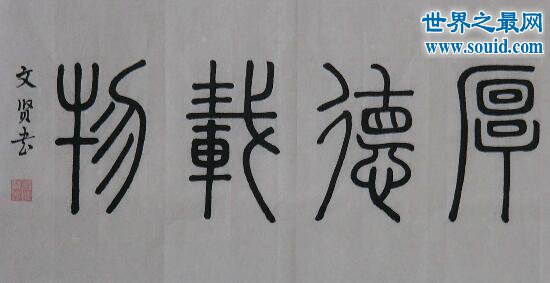 世界之最网
www.souid.com
厚德載物
文贤书